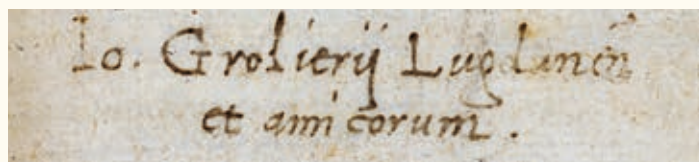 Io. Grolierij Lugdunen̄
et amicorum .